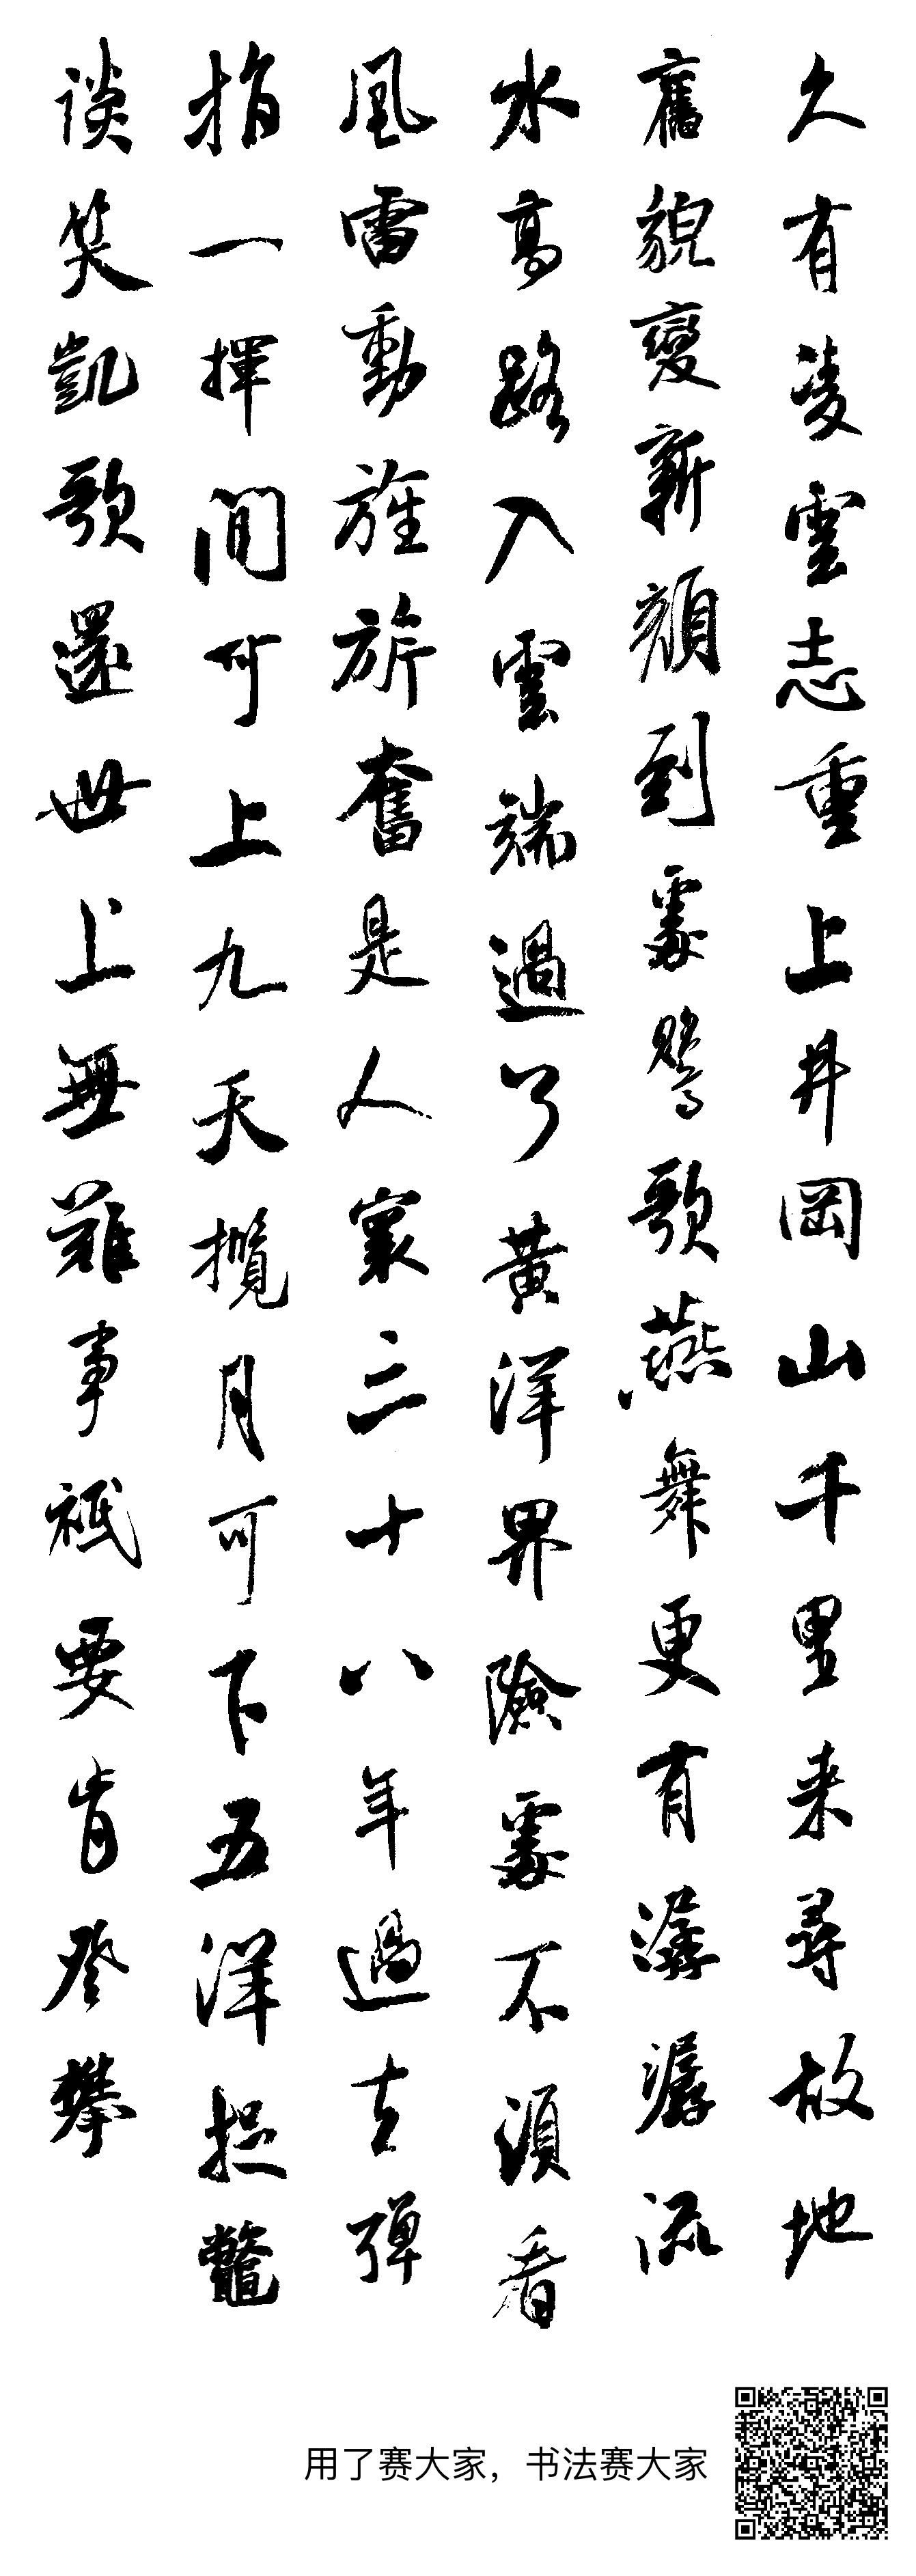 久有凌雲志重上井岡山千里来尋故地
舊貌變新顔到處鶯歌燕舞更有潺潺流
水高路入雲端過了黃洋界險處不須看
風雷動旌旂奮是人寰三十八年過去彈
指一揮間可上九天攬月可下五洋捉鱉
谈笑凱歌還世上無難事衹要肯登攀
用了赛大家，书法赛大家